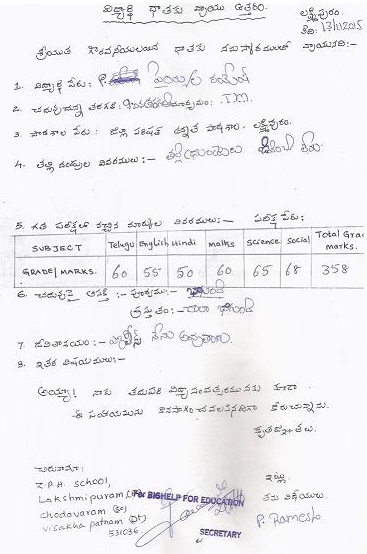 విద్యార్థి దాతకు వ్రాయు ఉత్తరం.
లక్ష్మీపురం.
తేది: 13/11/2015
శ్రీయుత గౌరవనీయులయిన దాతకు నమస్కారములతో వ్రాయునది:-
1. విద్యార్థి పేరు: P. రమేష్
2. చదువుచున్న తరగతి: మాధ్యమం: T.M.
3. పాఠశాల పేరు: జిల్లా పరిషత్ ఉన్నత పాఠశాల, లక్ష్మీపురం.
4. తల్లి దండ్రుల వివరములు:- తల్లిదండ్రులు లేరు.
5. గత పరీక్షలో వచ్చిన మార్కుల వివరములు:- పరీక్ష పేరు:
SUBJECT Telugu English Hindi maths science social Total Grade marks.
GRADE/MARKS. 60 55 50 60 65 68 358
6. చదువుపై ఆసక్తి :- పూర్వము:- బాగుంది
ప్రస్తుతం:- చాలా బాగుంది
7. జీవితాశయం:- పోలీస్ నేను అవుతాను.
8. ఇతర విషయములు:-
అయ్యా! నాకు తదుపరి విద్యా సంవత్సరమునకు కూడా
ఈ సహాయమును కొనసాగించవలసినదిగా కోరుచున్నాను.
కృతజ్ఞతలు.
చిరునామా:
Z.P.H. School,
Lakshmipuram,
chodavaram
visakha patnam (Dt)
531036
For BIGHELP FOR EDUCATION
SECRETARY
ఇట్లు
తమ విధేయులు.
P. Ramesh